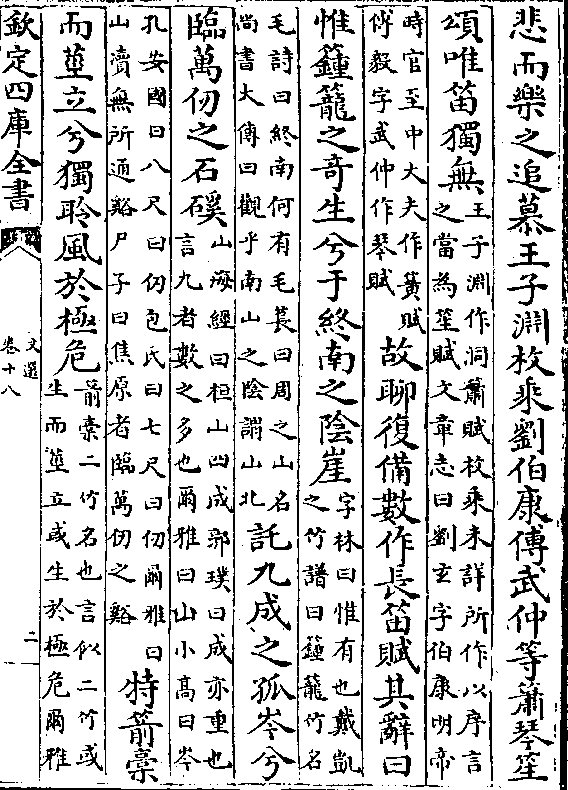 悲而樂之追慕王子淵枚乘劉伯康傅武仲等簫琴笙
頌唯笛獨無
王子淵作洞簫賦枚乘未詳所作以序言
之當為笙賦文章志曰劉玄字伯康明帝
時官至中大夫作簧賦
傅毅字武仲作琴賦
故聊復備數作長笛賦其辭曰
惟籦籠之奇生兮于終南之陰崖
字林曰惟有也戴凱
之竹譜曰籦籠竹名
毛詩曰終南何有毛萇曰周之山名
尚書大傳曰觀乎南山之陰謂山北
託九成之孤岑兮
臨萬仞之石磎
山海經曰桓山四成郭璞曰成亦重也
言九者數之多也爾雅曰山小高曰岑
孔安國曰八尺曰仞包氏曰七尺曰仞爾雅曰
山瀆無所通谿尸子曰焦原者臨萬仞之谿
特箭槀
而莖立兮獨聆風於極危
箭槀二竹名也言似二竹或
生而莖立或生於極危爾雅
欽定四庫全書
文選
卷十八
二